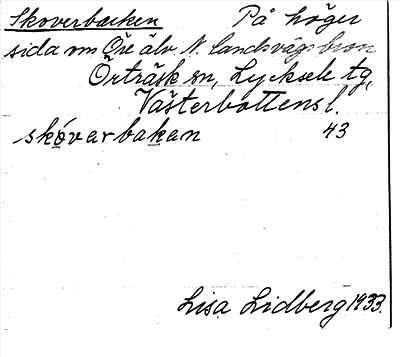 Skoverbacken På höger
sida om Öre älv. N. landsvägsbron
Örträsk sn, Lycksele tg,
Västerbottens l.
skóvarbakan 43
Lisa Lidberg 1933.